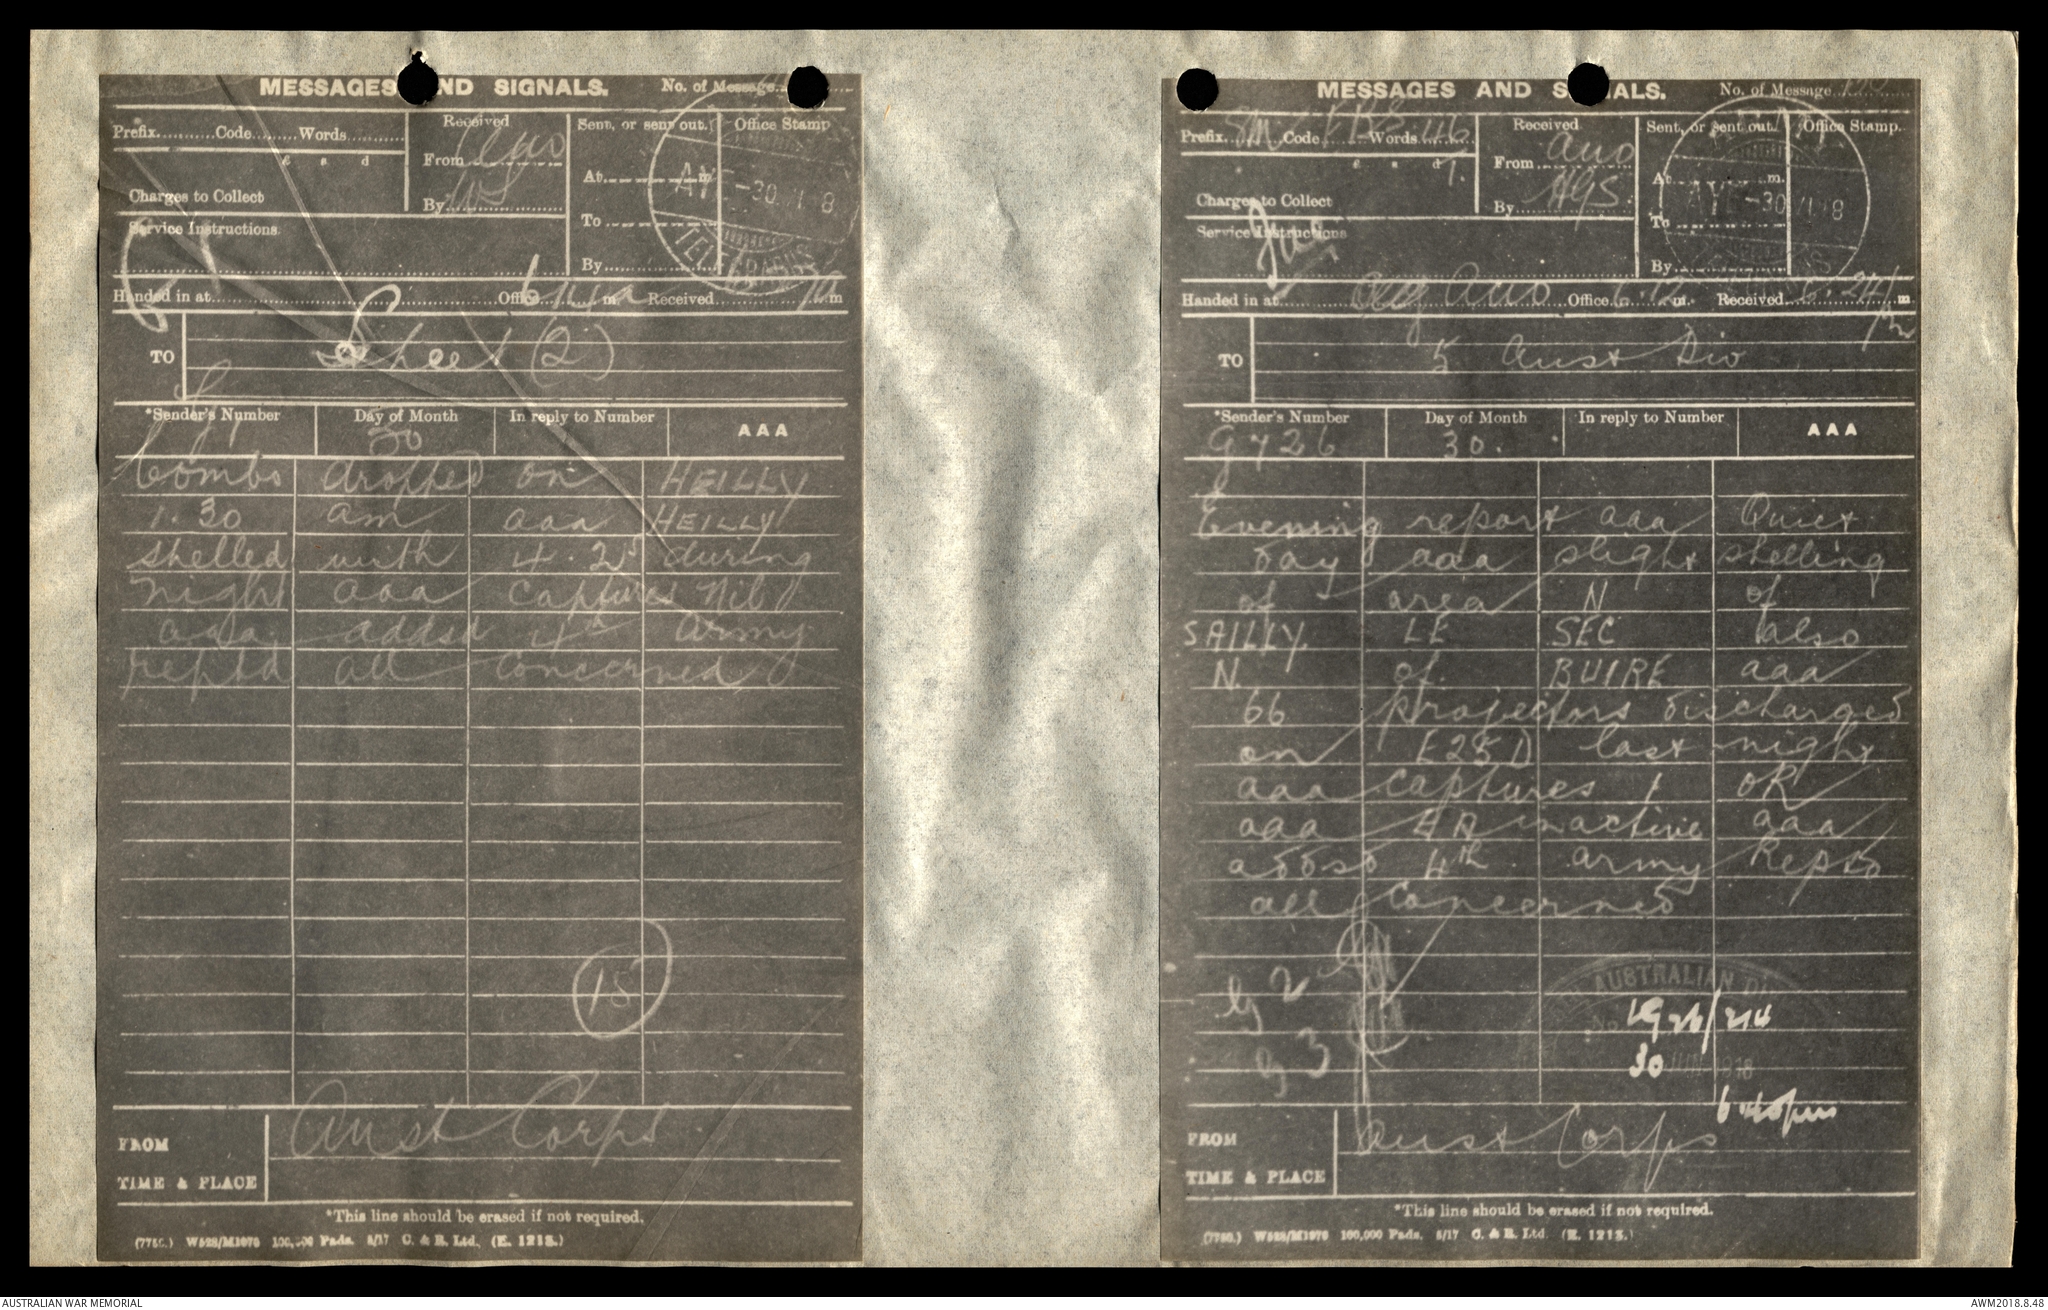 MESSAGES AND SIGNALS. No. of Message
Prefix Code Words
£ s d
Charges to Collect
Service Instructions.
Received
From
By
Sent, or sent out.
At m.
To
By
Office Stamp
-30 VI 8
TELEGRAPHS
Handed in at Office m. Received m
TO Sheet (2)
*Sender's Number Day of Month In reply to Number AAA
30
bombs dropped on HEILLY
1.30 am aaa HEILLY
shelled with 4.2s during
night aaa captures Nil
aaa addsd 4th Army
reptd all concerned
15
FROM Aust Corps
TIME & PLACE
*This line should be erased if not required.
(7756.) W528/M1970 100,000 Pads. 5/17 C. & R. Ltd. (E. 1213.)
MESSAGES AND SIGNALS. No. of Message
Prefix SM Code Words 46
£ s d
Charges to Collect
Service Instructions
Received
From auo
By HGS.
Sent, or sent out.
At m.
To
By
Office Stamp.
-30 VI 18
Handed in at Office m. Received m
TO 5 Aust Div
*Sender's Number Day of Month In reply to Number AAA
G726 30.
Evening report aaa Quiet
day aaa slight shelling
of area N of
SAILLY LE SEC also
N. of BUIRE aaa
66 projectors discharged
on E25D last night
aaa captures 1 OR
aaa EA inactive aaa
addsd 4th army Reptd
all concerned
G 2
G 3
AUSTRALIAN DIV
No IG 26/214
30 JUN 1918
6.40pm
FROM Aust Corps
TIME & PLACE
*This line should be erased if not required.
(7756.) W528/M1970 100,000 Pads. 5/17 C. & R. Ltd. (E. 1213.)
AUSTRALIAN WAR MEMORIAL AWM2018.8.48